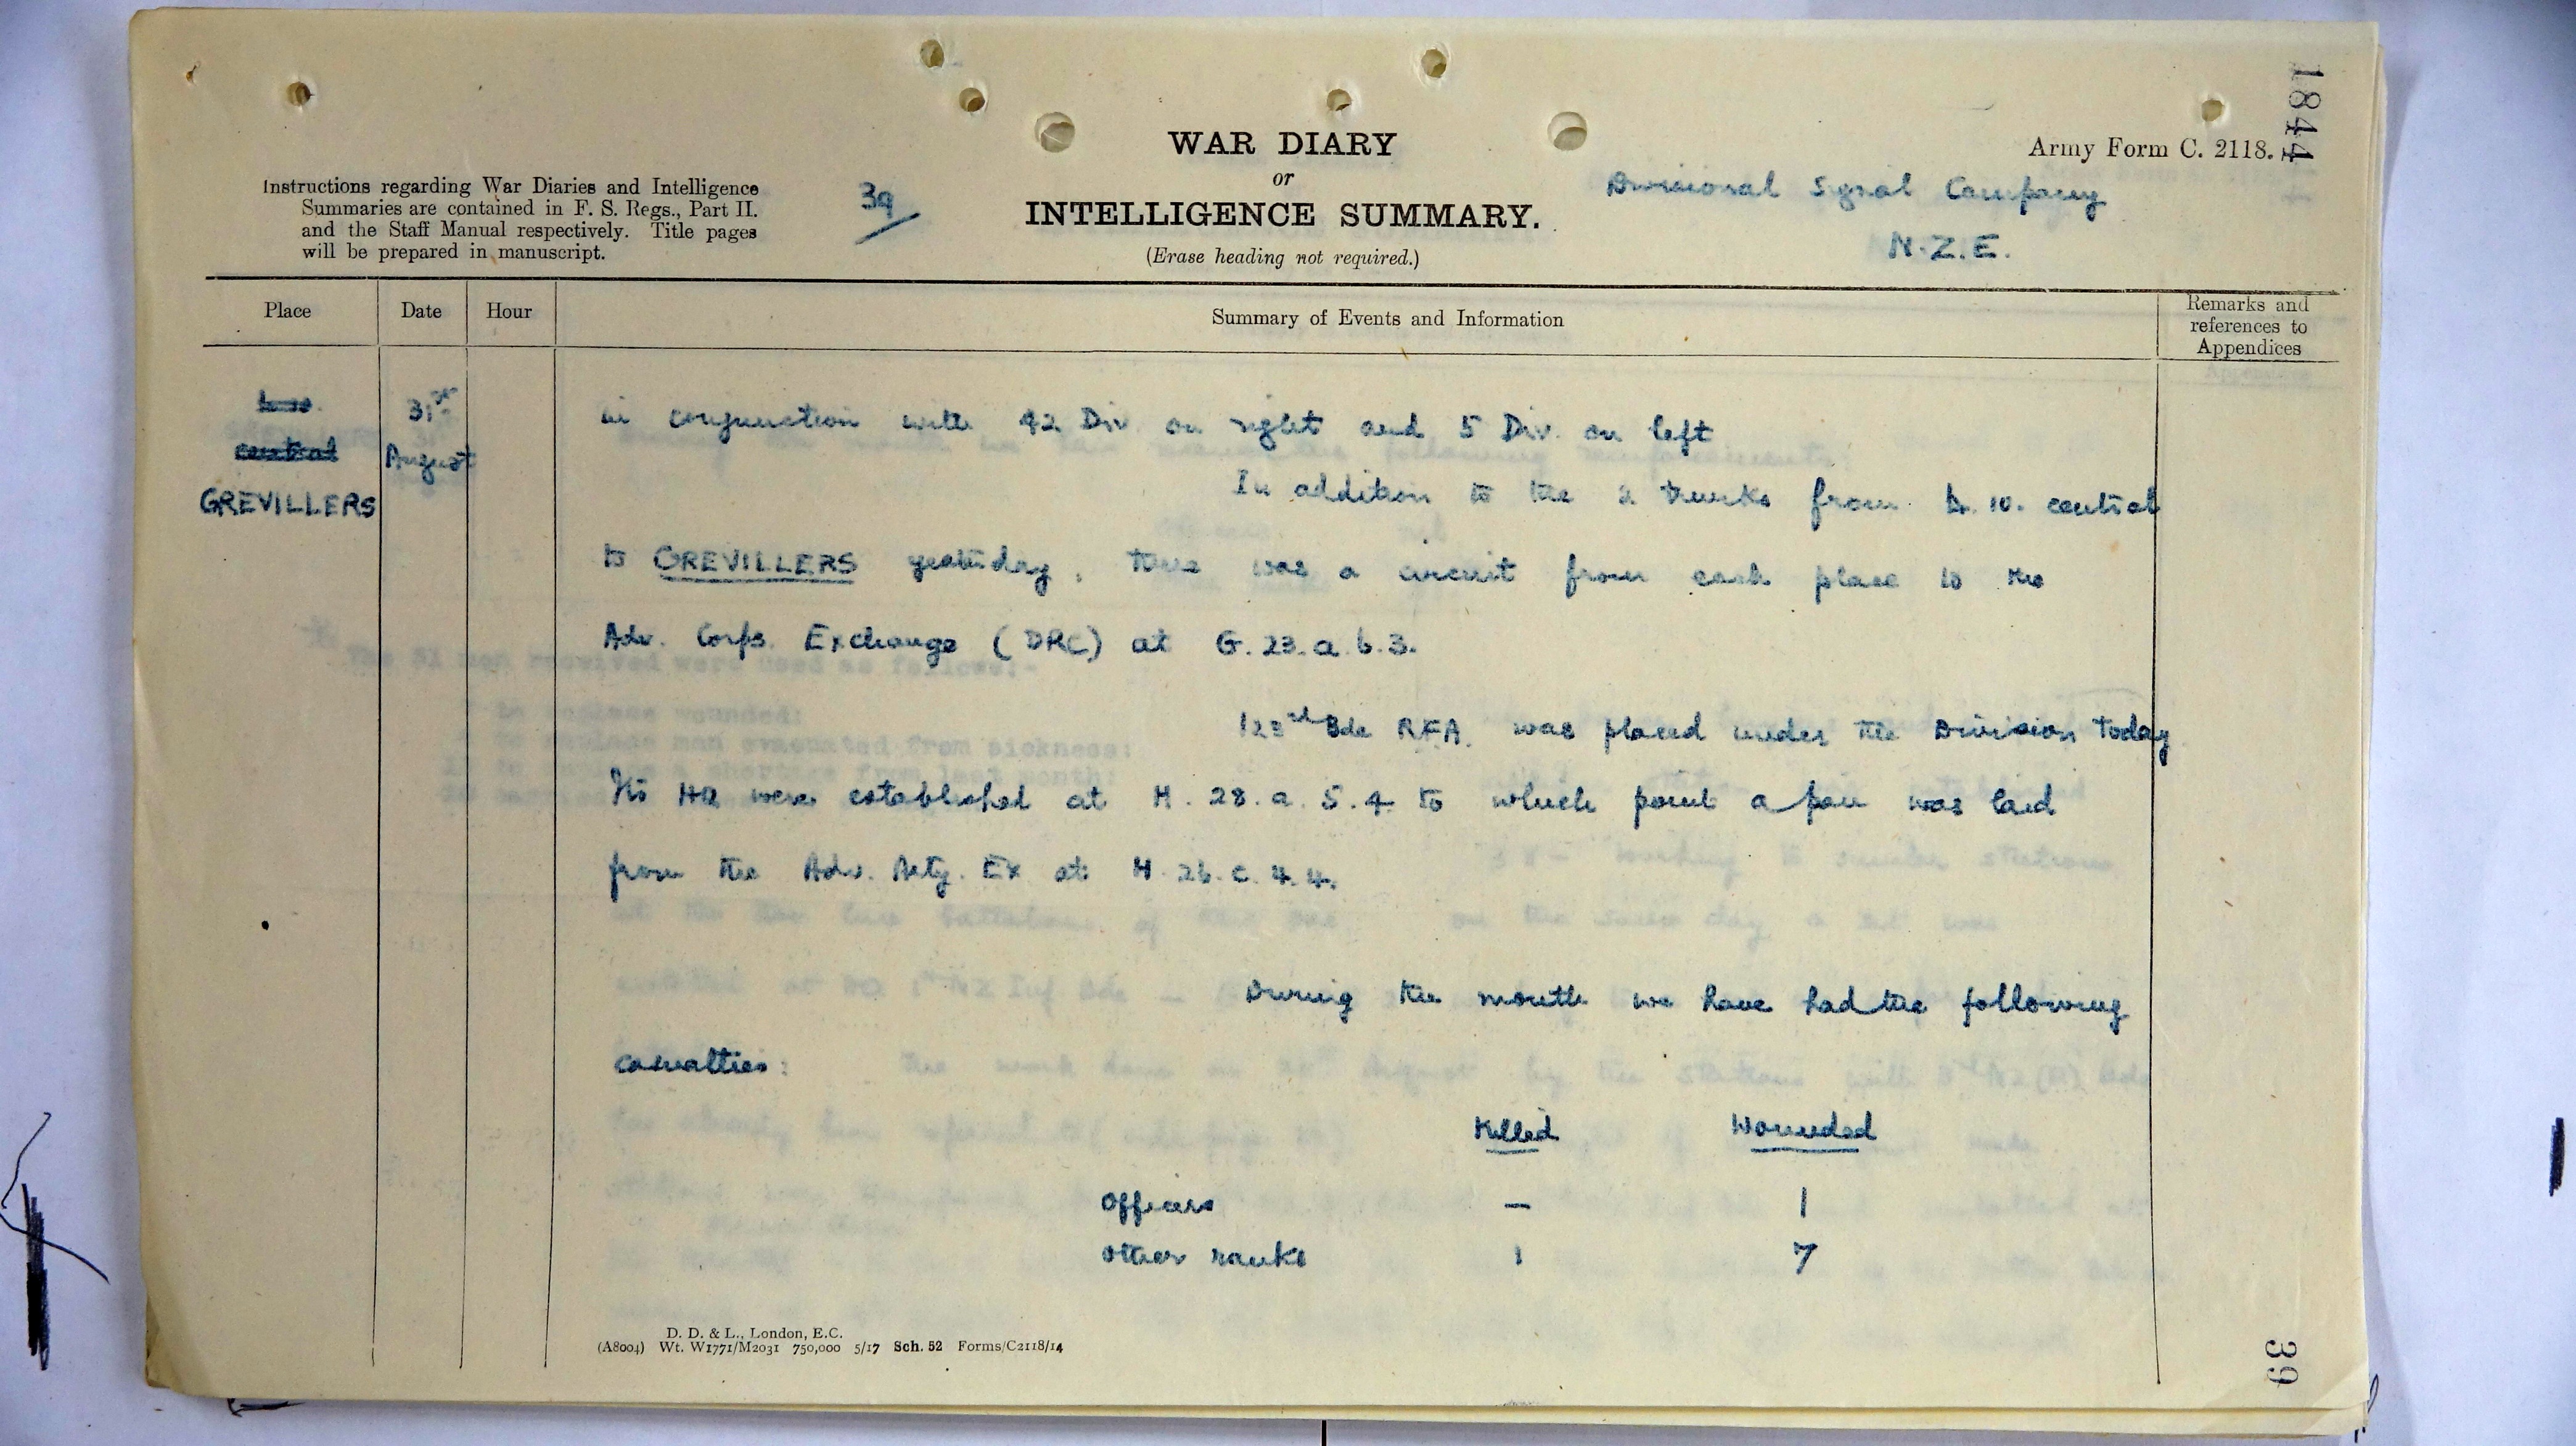 1844
Army Form C. 2118.
WAR DIARY
or
INTELLIGENCE SUMMARY.
(Erase heading not required.)
Instructions regarding War Diaries and Intelligence
Summaries are contained in F. S. Regs., Part II.
and the Staff Manual respectively. Title pages
will be prepared in manuscript.
39
Divisional Signal Company
N.Z.E.
Place
Date
Hour
Summary of Events and Information
Remarks and
references to
Appendices
central
GREVILLERS
31st
August
in conjunction with 42 Div on right and 5 Div. on left
In addition to the 2 trunks from 10. central
to GREVILLERS yesterday, there was a circuit from each place to the
Adv. Corps. Exchange (DRC) at G. 23. a. 6. 3.
123rd Bde RFA. was placed under the Division today
Its HQ were established at H. 28. a. 5. 4 to which point a pair was laid
from the Adv. Arty. Ex at H. 26. c. 4. 4.
During the month we have had the following
casualties:
Killed Wounded
Officers — 1
Other ranks 1 7
D. D. & L., London, E.C.
(A8004) Wt. W1771/M2031 750,000 5/17 Sch. 52 Forms/C2118/14
39